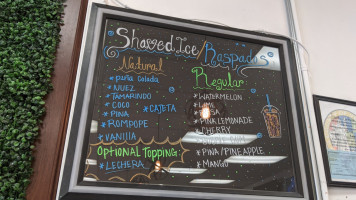 Shaved Ice Raspados
Natural
*piña Colada
*NUEZ
*TAMARINDO
*COCO
*CAJETA
*PINA
*ROMPOPE
*VANILIA
OPTIONAL TOPPING
*LECHERA
Regular
*WATERMELON
*LIME
*PINK LEMONADE
*CHERRY
*PINA/PINEAPPLE
*MANGO